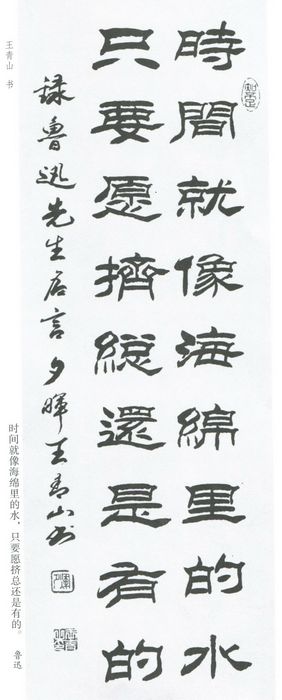 時間就像海綿里的水
只要愿擠總還是有的
録鲁迅先生名言夕暉王青山书
王青山 书
时间就像海绵里的水，只要愿挤总还是有的。 鲁迅